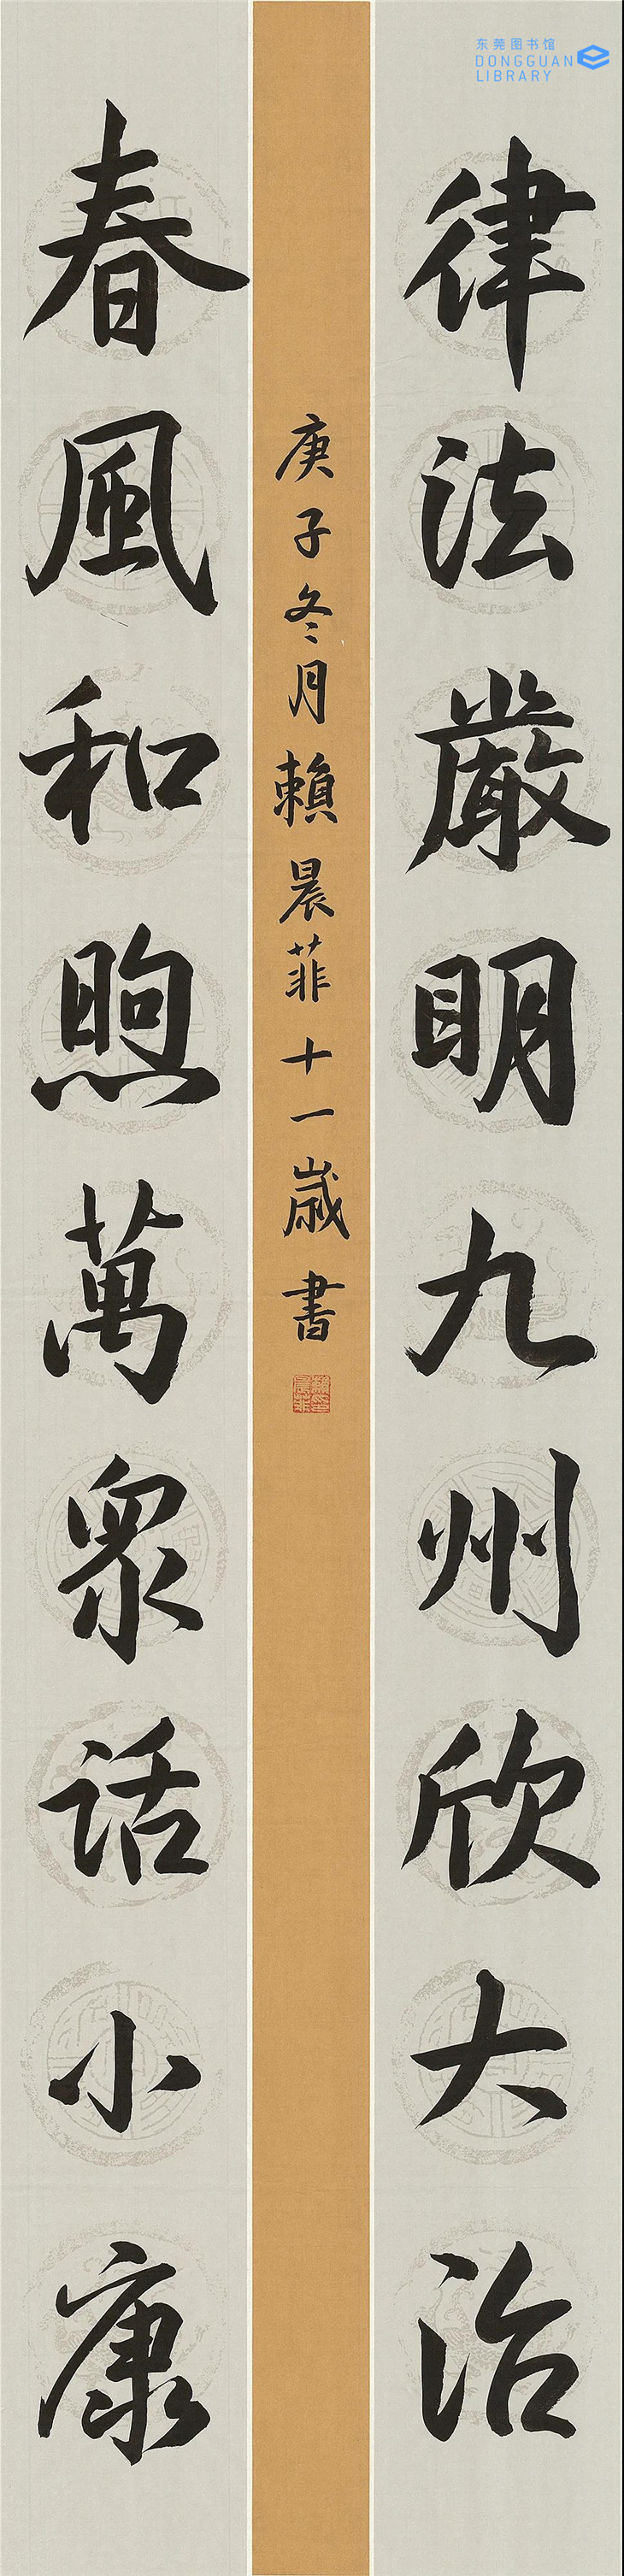 东莞图书馆
DONGGUAN
LIBRARY
律法嚴明九州欣大治
春風和煦萬眾话小康
庚子冬月賴晨菲十一歲書
賴晨菲印